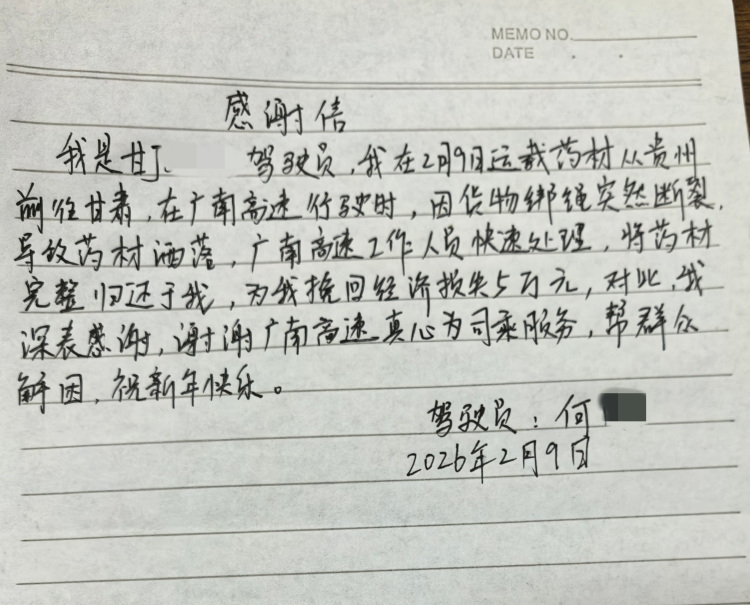 MEMO NO.
DATE . .
感谢信
我是甘J. 驾驶员,我在2月9日运载药材从贵州
前往甘肃,在广南高速行驶时,因货物绑绳突然断裂,
导致药材洒落,广南高速工作人员快速处理,将药材
完整归还于我,为我挽回经济损失5万元,对此,我
深表感谢,谢谢广南高速真心为司乘服务,帮群众
解困,祝新年快乐。
驾驶员:何
2026年2月9日